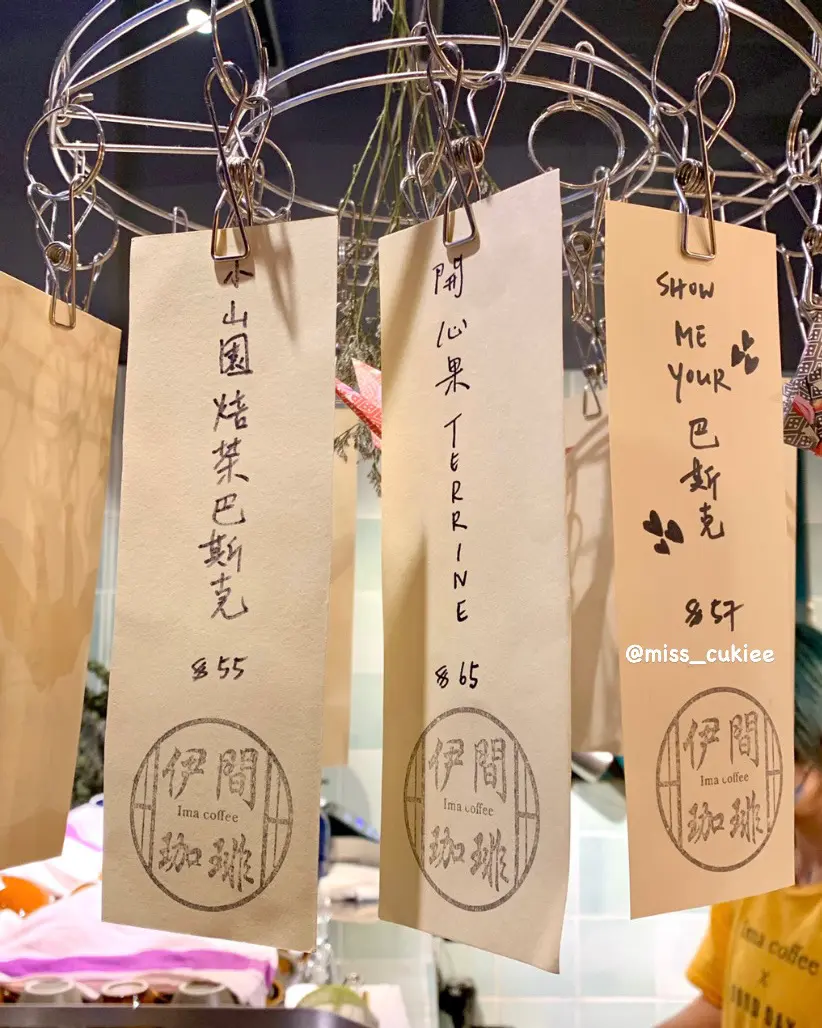 小山園焙茶巴斯克
$55
伊間
Ima coffee
珈琲
開心果TERRINE
$65
伊間
Ima coffee
珈琲
SHOW
ME
YOUR
巴斯克
$57
@miss_cukiee
伊間
Ima coffee
珈琲
Ima coffee
X